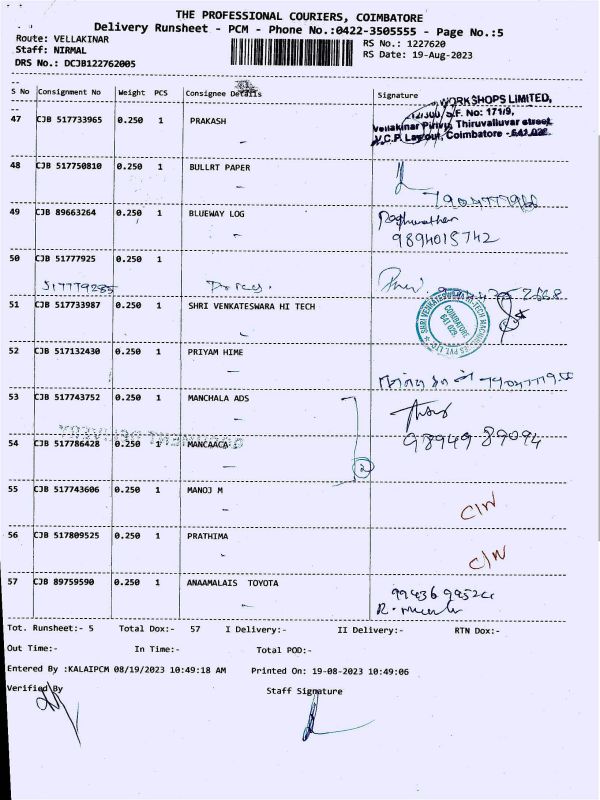 THE PROFESSIONAL COURIERS, COIMBATORE
Delivery Runsheet - PCM - Phone No.:0422-3505555 - Page No.:5
Route: VELLAKINAR
RS No.: 1227620
Staff: NIRMAL
RS Date: 19-Aug-2023
DRS No.: DCJB122762005
S No Consignment No Weight PCS Consignee Details Signature
WORKSHOPS LIMITED,
S.F. No: 171/9,
47 CJB 517733965 0.250 1 PRAKASH
Vellakinar Pirivu, Thiruvalluvar street,
V.C.P. Layout, Coimbatore - 641.029.
48 CJB 517750810 0.250 1 BULLRT PAPER
49 CJB 89663264 0.250 1 BLUEWAY LOG
9894015742
50 CJB 51777925 0.250 1
517779285
51 CJB 517733987 0.250 1 SHRI VENKATESWARA HI TECH
SHRI VENKATESWARA HI-TECH MACHINERIES PVT LTD
COIMBATORE
641 029
52 CJB 517132430 0.250 1 PRIYAM HIME
53 CJB 517743752 0.250 1 MANCHALA ADS
98949 89094
54 CJB 517786428 0.250 1 MANCAACA
2
55 CJB 517743606 0.250 1 MANOJ M
C/N
56 CJB 517809525 0.250 1 PRATHIMA
C/N
57 CJB 89759590 0.250 1 ANAAMALAIS TOYOTA
Tot. Runsheet:- 5 Total Dox:- 57 I Delivery:- II Delivery:- RTN Dox:-
Out Time:- In Time:- Total POD:-
Entered By :KALAIPCM 08/19/2023 10:49:18 AM Printed On: 19-08-2023 10:49:06
Verified By Staff Signature